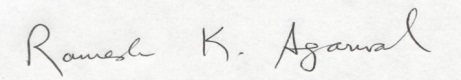 Ramesh K. Agarwal